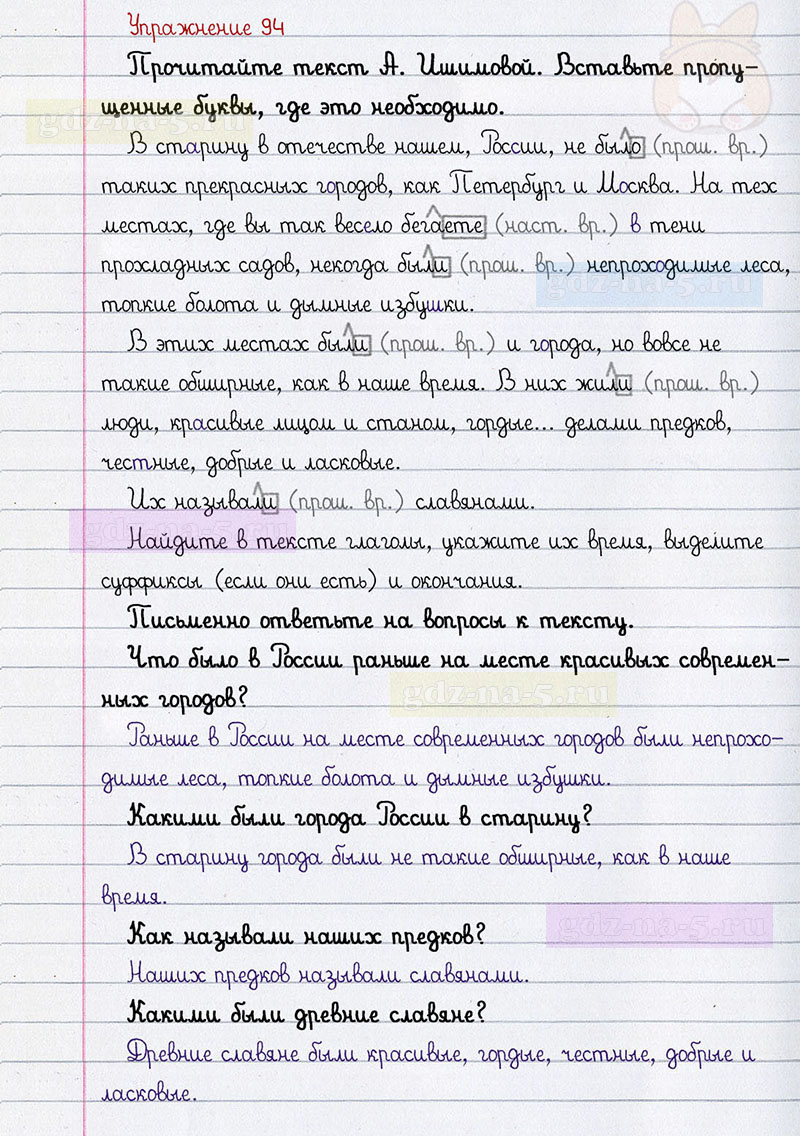 Упражнение 94
Прочитайте текст А. Ишимовой. Вставьте пропу-
щенные буквы, где это необходимо.
gdz-na-5.ru
В старину в отечестве нашем, России, не было (прош. вр.)
таких прекрасных городов, как Петербург и Москва. На тех
местах, где вы так весело бегаете (наст. вр.) в тени
прохладных садов, некогда были (прош. вр.) непроходимые леса,
gdz-na-5.ru
топкие болота и дымные избушки.
В этих местах были (прош. вр.) и города, но вовсе не
такие обширные, как в наше время. В них жили (прош. вр.)
люди, красивые лицом и станом, гордые... делами предков,
честные, добрые и ласковые.
Их называли (прош. вр.) славянами.
gdz-na-5.ru
Найдите в тексте глаголы, укажите их время, выделите
суффиксы (если они есть) и окончания.
Письменно ответьте на вопросы к тексту.
Что было в России раньше на месте красивых современ-
ных городов?
gdz-na-5.ru
Раньше в России на месте современных городов были непрохо-
димые леса, топкие болота и дымные избушки.
Какими были города России в старину?
В старину города были не такие обширные, как в наше
время.
gdz-na-5.ru
Как называли наших предков?
Наших предков называли славянами.
Какими были древние славяне?
Древние славяне были красивые, гордые, честные, добрые и
ласковые.